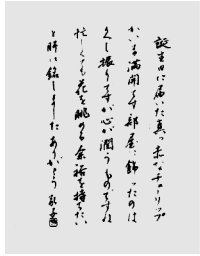 誕生日に届いた真っ赤なチューリップ
がいま満開です部屋に飾ったのは
久し振りですが心が潤うものですね
忙しくても花を眺める余裕を持ちたい
と肝に銘じましたありがとう